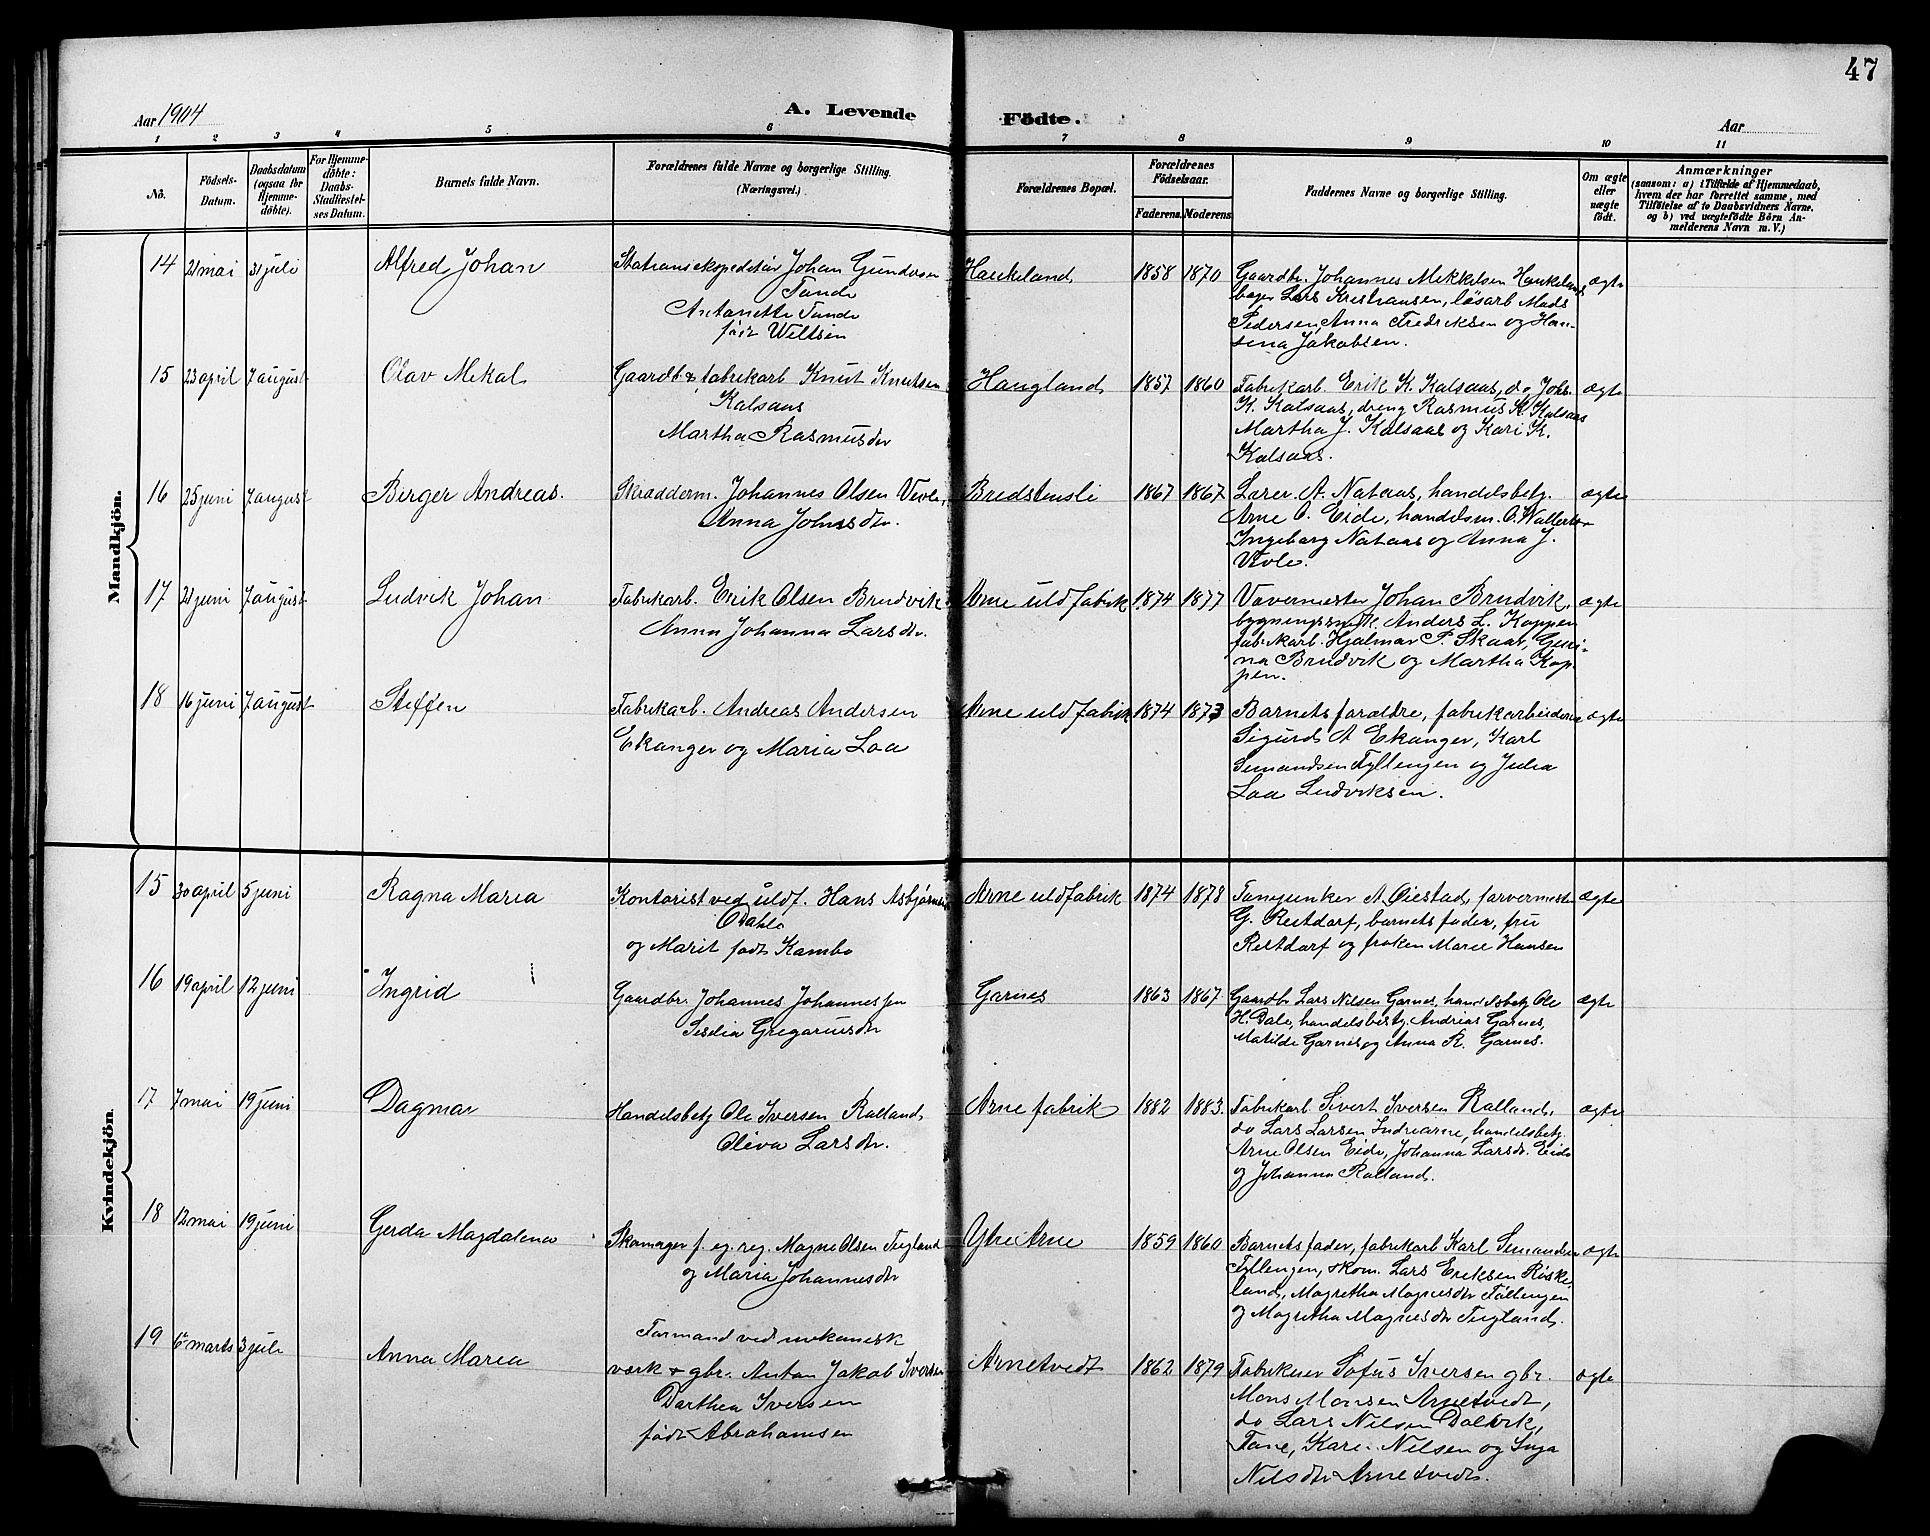 47
Aar 1904
A. Levende
Födte.
Aar
1 2 3 4 5 6 7 8 9 10 11
No.
Födsels-
Datum.
Daabsdatum
(ogsaa for
Hjemme-
döbte).
For Hjemme-
döbte:
Daabs-
Stadfæstel-
ses Datum.
Barnets fulde Navn.
Forældrenes fulde Navne og borgerlige Stilling.
(Næringsvei.)
Forældrenes Bopæl.
Forældrenes
Födselsaar.
Faderens. Moderens.
Faddernes Navne og borgerlige Stilling.
Om ægte
eller
uægte
födt.
Anmærkninger
(saasom: a) i Tilfælde af Hjemmedaab,
hvem der har forrettet samme, med
Tilföielse af to Daabsvidners Navne.
og b) ved uægtefödte Börn An-
melderens Navn m. V.)
Mandkjön.
14 21 mai 31 juli Alfred Johan
Johan Gundersen
Tande
Antonette Tande
født
Haukeland 1858 1870
Gaardbr. Johannes Mikkelsen Haukeland
Lars Kristiansen, løsarb Mads
Pedersen, Anna Fredriksen og Han-
sina Jakobsen.
ægte
15 23 april 7 august Olav Mikal
Gaardb & fabrikarb Knut Knutsen
Kalsaas
Martha Rasmusdr
Haugland 1857 1860
Fabrikarb. Erik K. Kalsaas, do Johs.
K. Kalsaas, dreng Rasmus K. Kalsaas
Martha J. Kalsaas og Kari K.
Kalsaas.
ægte
16 25 juni 7 august Birger Andreas.
Skrædderm. Johannes Olsen Vevle,
Anna Johnsdr.
Bredstensli 1867 1867
Lærer A. Nataas, handelsbetj.
Arne O. Eide, handelsm. O.
Ingeborg Nataas og Anna J.
Vevle.
ægte
17 21 juni 7 august Ludvik Johan
Fabrikarb. Erik Olsen Brudvik
Anna Johanna Larsdr.
Arne uldfabrik 1874 1877
Vævermester Johan Brudvik,
Anders L. Koppen
fabrikarb. Hjalmar P. Skaar, Guri-
na Brudvik og Martha Kop-
pen.
ægte
18 16 juni 7 august Steffen
Fabrikarb. Andreas Andersen
Ekanger og Maria Loa
Arne uldfabrik 1874 1873
Barnets forældre, fabrikarbeiderne
Sigurd A Ekanger, Karl
Simundsen Fyllingen og Julia
Loa Ludviksen.
ægte
Kvindekjön.
15 30 april 5 juni Ragna Maria
Kontorist ved uldf. Hans Asbjørnsen
Dahle
og Marit født Kambo
Arne uldfabrik 1874 1878
A. Øiestad, farvermester
G. Restdorf, barnets fader, fru
Restdorf og frøken Marie Hansen
ægte
16 19 april 12 juni Ingrid
Gaardbr. Johannes Johannessen
Seselia Gregoriusdr
Garnes 1863 1867
Gaardbr Lars Nilsen Garnes, handelsbetj. Ole
H. Dale, handelsbestj. Andreas Garnes,
Matilde Garnes og Anna R. Garnes.
ægte
17 7 mai 19 juni Dagmar
Handelsbetj Ole Iversen Ralland,
Oliva Larsdr.
Arne fabrik 1882 1883.
Fabrikarb Sivert Iversen Ralland,
do Lars Larsen Indrearne, handelsbetj.
Arne Olsen Eide, Johanna Larsdr. Eide
og Johanna Ralland.
ægte
18 12 mai 19 juni Gerda Magdalena
Skomager f. eg. reg. Magne Olsen Teigland
og Maria Johannesdr
Ytre Arne 1859 1860
Barnets fader, fabrikarb Karl Simundsen
Fyllingen, skom. Lars Eriksen Røske-
land, Magretha Magnesdr Föllingen
og Magretha Magnesdr Teigland.
ægte
19 6 marts 3 juli Anna Maria
Formand ved mekanisk
værk & gbr. Anton Jakob Iversen
Dorthea Iversen
født Abrahamsen
Arnetvedt 1862 1879
Fabrikeier Sofus Iversen gbr.
Mons Monsen Arnetvedt,
do Lars Nilsen Dalevik,
Fane, Kari Nilsen og Inga
Nilsdtr Arnetvedt.
ægte